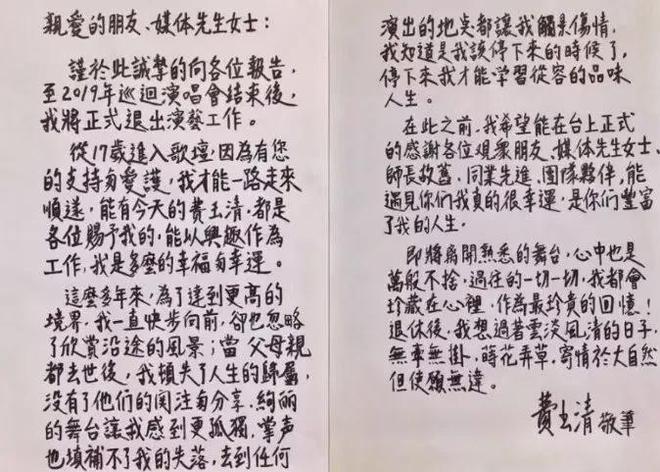 親愛的朋友、媒体先生女士：
謹於此誠摯的向各位報告，
至2019年巡迴演唱會結束後，
我將正式退出演藝工作。
從17歲進入歌壇，因為有您
的支持与愛護，我才能一路走來
順遂，能有今天的費玉清，都是
各位賜予我的，能以興趣作為
工作，我是多麼的幸福与幸運。
這麼多年來，為了達到更高的
境界，我一直快步向前，卻也忽略
了欣賞沿途的風景；當父母親
都去世後，我頓失了人生的歸屬，
沒有了他們的関注与分享，絢麗
的舞台讓我感到更孤獨，掌声
也填補不了我的失落，去到任何
演出的地点都讓我觸景傷情，
我知道是我該停下來的時候了，
停下來我才能学習從容的品味
人生。
在此之前，我希望能在台上正式
的感謝各位觀衆朋友、媒体先生女士、
師長故舊、同業先進、团隊夥伴，能
遇見你們我真的很幸運，是你們豐富
了我的人生。
即將离開熟悉的舞台，心中也是
萬般不捨，過往的一切一切，我都會
珍藏在心裡，作為最珍貴的回憶！
退休後，我想過著雲淡風清的日子，
無牽無掛，蒔花弄草，寄情於大自然
但使願無違。
費玉清 敬筆